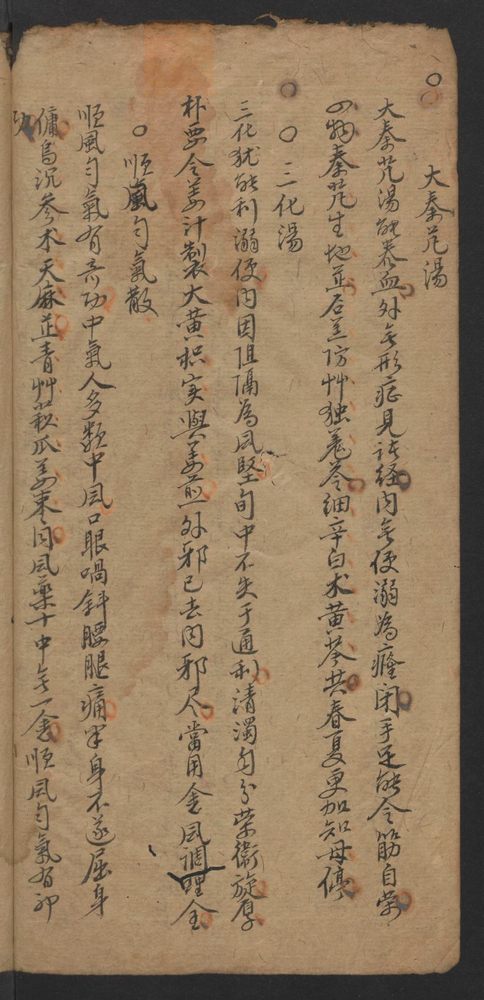 大秦艽湯
大秦艽湯能养血外無形症見諸经内無便溺為癃闭手足能令筋自荣
四物秦艽生地芷石羔防艸独羗苓细辛白术黄芩共春夏更加知母停
三化湯
三化犹能利溺便内因阻隔為風堅旬中不失于通利清濁匀分荣衛旋厚
朴要令姜汁製大黄枳实與羗煎外邪已去内邪尽當用金風調理全
順風匀氣散
順風匀氣有奇功中氣人多類中風口眼喎斜腰腿痛半身不遂屈身
傭烏沉参术天麻芷青艸蘇瓜姜枣同風藥十中無一金順風匀氣有神
功